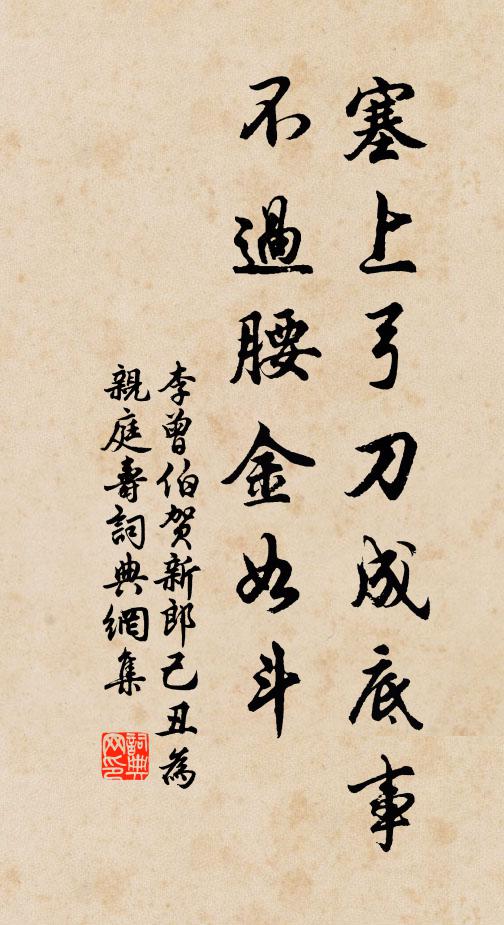 塞上弓刀成底事
不過腰金如斗
李曾伯賀新郎己丑為
親庭壽詞典網集
詞典
网印